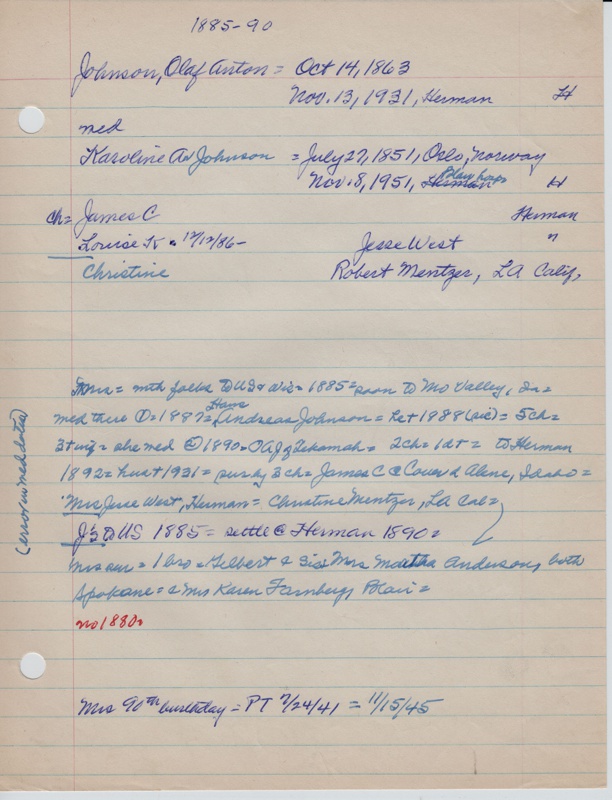 1885-90
Johnson, Olaf Anton = Oct 14, 1863
Nov. 13, 1931, Herman H
med
Karoline A Johnson = July 27, 1851, Oslo, Norway
Nov. 8, 1951, Herman Blair hosp H
ch = James C Herman
Louise K = 12/12/86- Jesse West "
Christine Robert Mentzer, LA Calif.
Mrs = with folks to US & Wis = 1885 = soon to Mo Valley, Ia =
med there ① = 1887 = Hans Andreas Johnson = he + 1888 (sic) = 5 ch =
3 + = she med @ 1890 = OAJ @ Tekamah = 2 ch = 1 dt = to Herman
1892 = hus + 1931 = sur by 3 ch = James C @ Coeur d Alene, Idaho =
Mrs Jesse West, Herman = Christine Mentzer, LA Cal =
J's to US 1885 = settle @ Herman 1890 =
Mrs sur = 1 bro = Gilbert & sis Mrs Martha Anderson, both
Spokane = & Mrs Karen Blair =
no 1880s
(error in med dates)
Mrs 90th birthday = PT 7/24/41 = 11/15/45